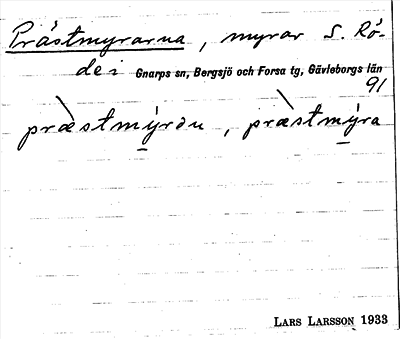 Prästmyrarna, myrar S. Rö-
de i Gnarps sn, Bergsjö och Forsa tg, Gävleborgs län
91
præ̀stmy̱rɑu, præ̀stmy̱ra
LARS LARSSON 1933